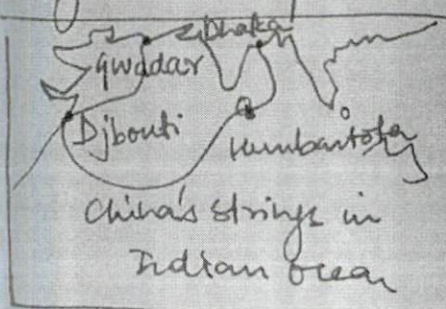 Dhaka
Gwadar
Djbouti
Humbantota
China's strings in
Indian ocean